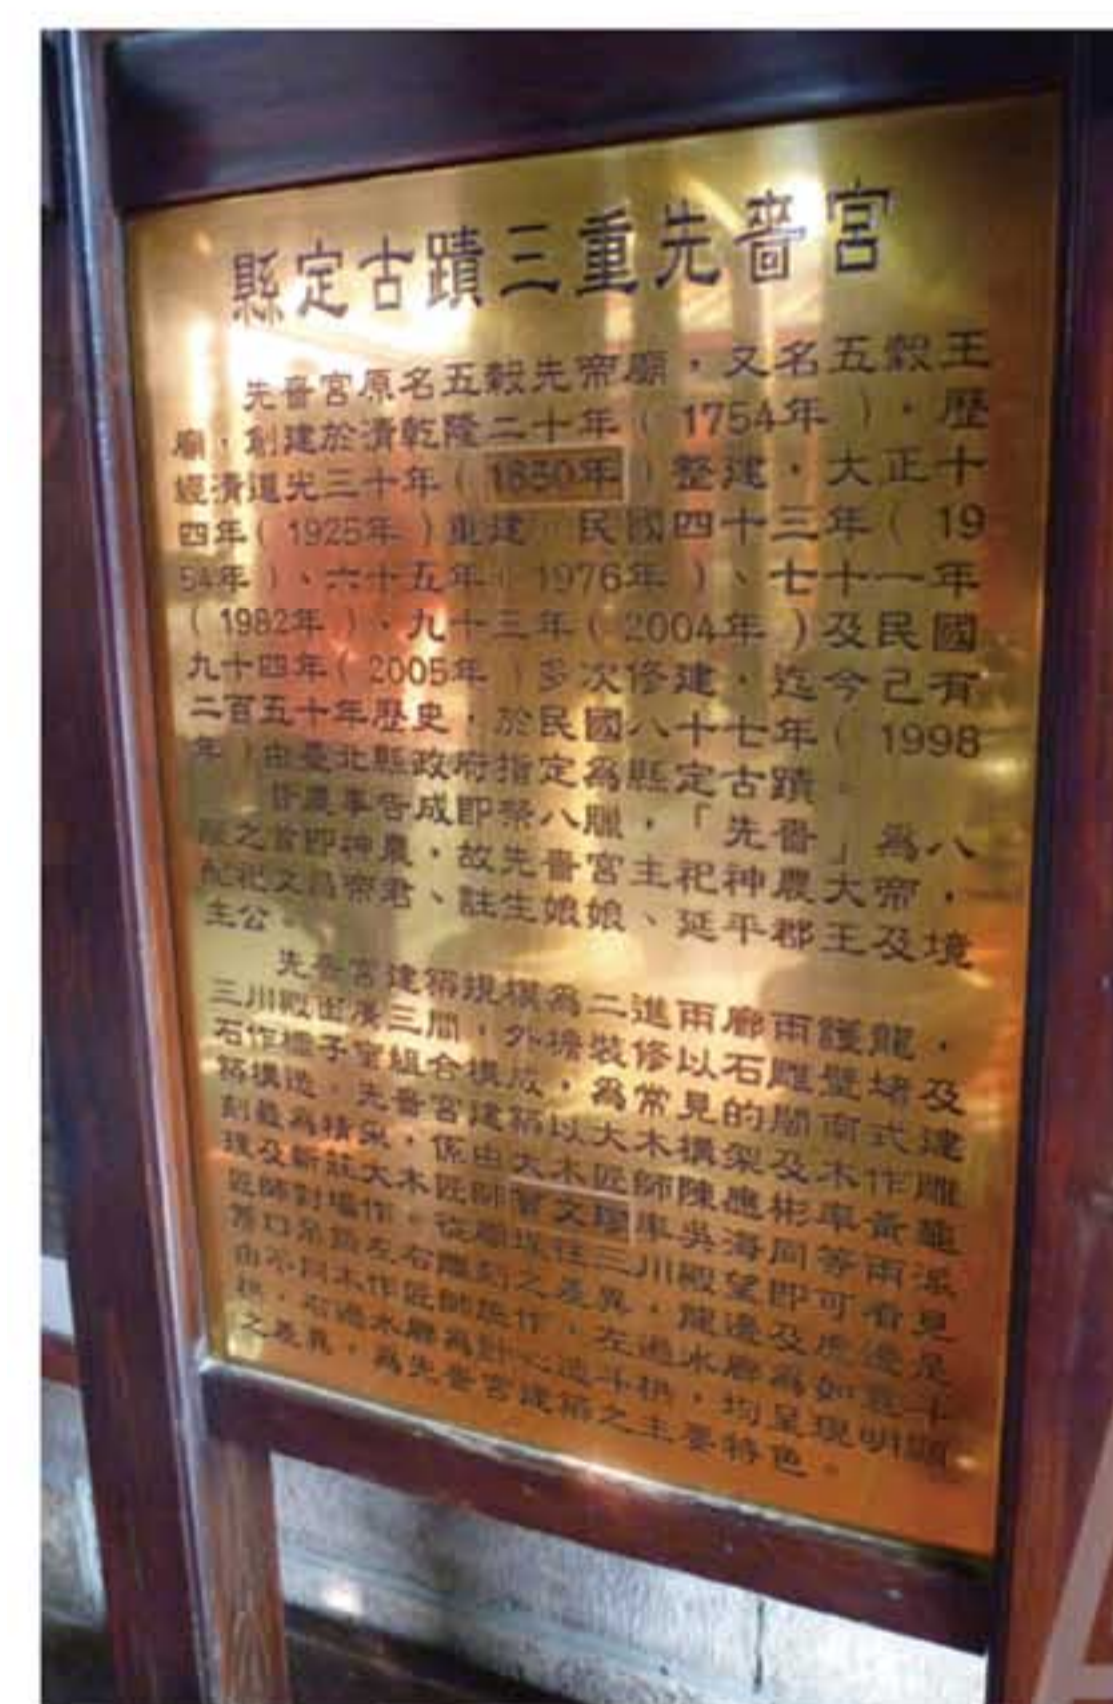 縣定古蹟三重先嗇宮
先嗇宮原名五穀先帝廟，又名五穀王
廟，創建於清乾隆二十年(1754年)，歷
經清道光三十年(1850年)整建，大正十
四年(1925年)重建 民國四十三年(19
54年)、六十五年(1976年)、七十一年
(1982年)、九十三年(2004年)及民國
九十四年(2005年)多次修建，迄今已有
二百五十年歷史，於民國八十七年(1998
年)由臺北縣政府指定為縣定古蹟。
昔農事告成即祭八臘，「先嗇」為八
臘之首即神農，故先嗇宮主祀神農大帝，
配祀文昌帝君、註生娘娘、延平郡王及境
主公。
先嗇宮建築規模為二進兩廊兩護龍，
三川殿面廣三間，外擔裝修以石雕壁堵及
石作櫃子窗組合構成，為常見的閩南式建
築構造。先嗇宮建築以大木構架及木作雕
刻最為精采，係由大木匠師陳應彬率黃龜
理及新莊大木匠師曾文珍率吳海同等兩派
匠師對場作。從廟埕往三川殿望即可看見
簷口吊筒左右雕刻之差異，龍邊及虎邊是
由不同木作匠師施作，左邊水廊為如意斗
栱，右邊水廊為計心造斗栱，均呈現明顯
之差異，為先嗇宮建築之主要特色。